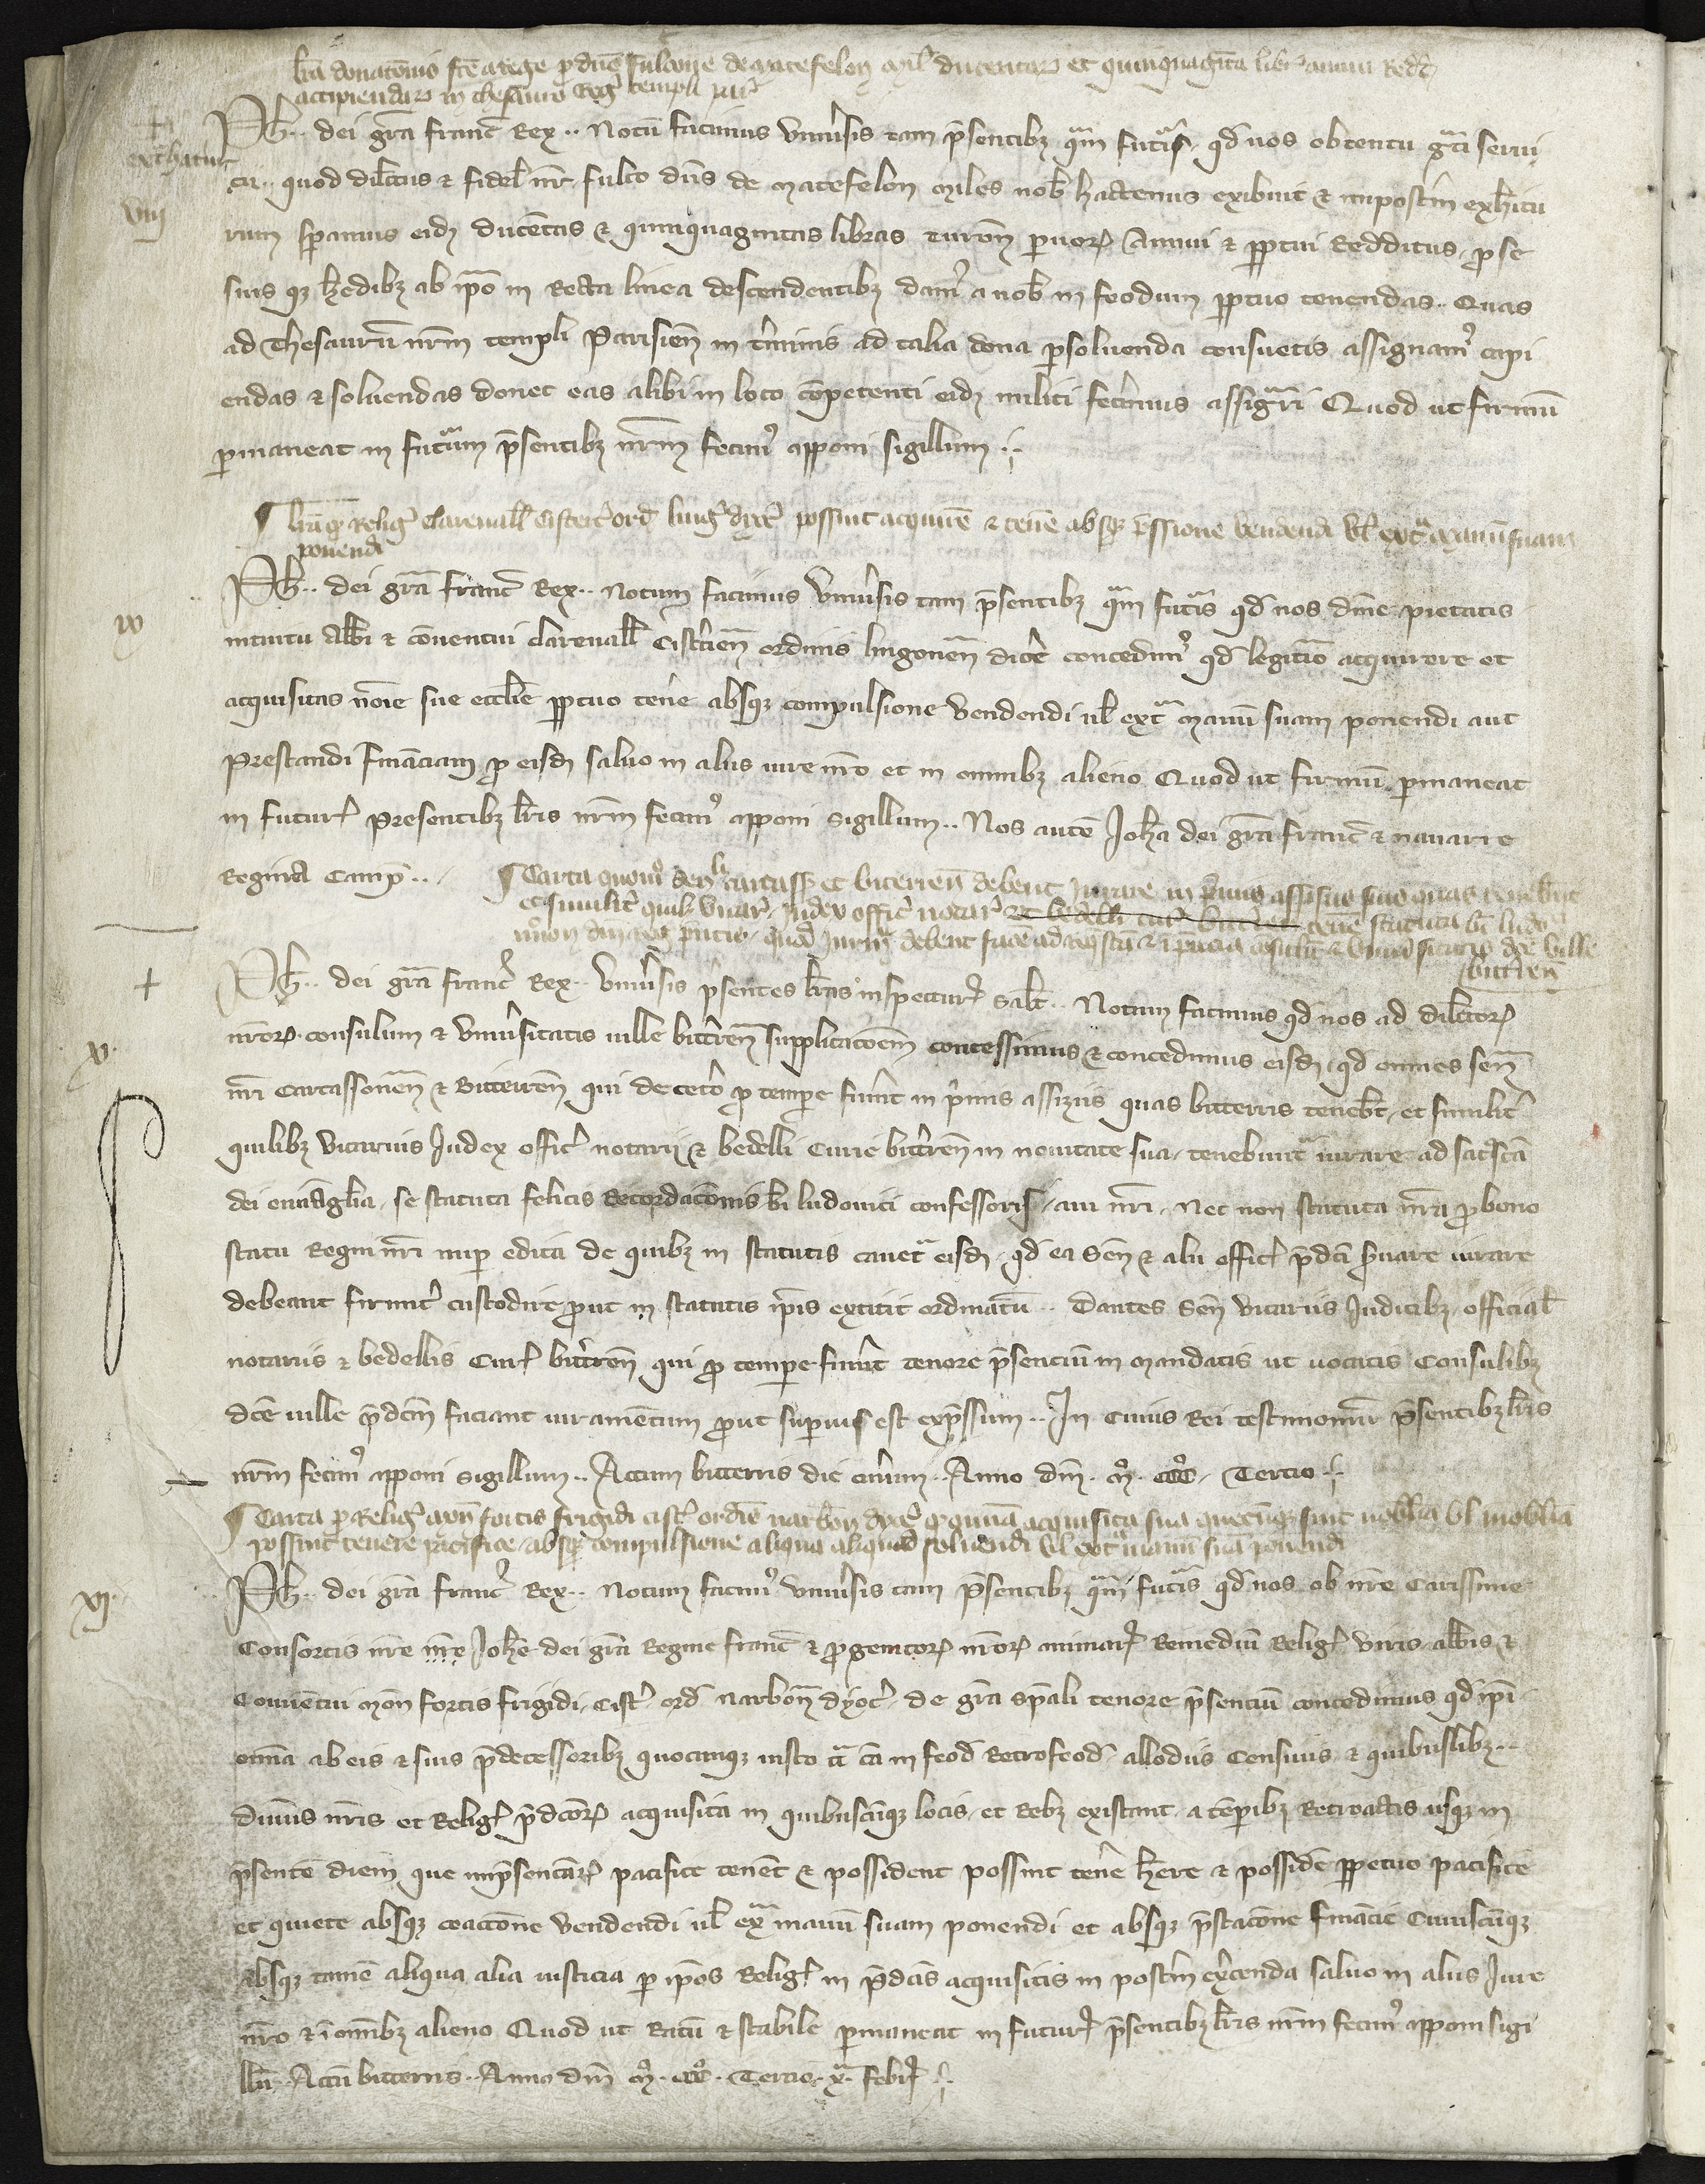 lra donatõnis fce a rege p dño Fulcone de Matefelon mil ducentar et quinquaginta libr annui redd
accipiendar in thesauro reg templi par
+ extrahatur
Ph.. dei gra Franc Rex.. Notũ facimus vniuersis tam psentibz qam futuris qd nos obtentu gti serui
cii.. quod dilctus & fidel nr Fulco dñs de Matefelon miles nob hactenus exibuit & inposterum exhibitu
viij rum speramus eidẽ ducentas & quinquagintas libras turoñ paruoꝝ annui & ppetui redditus, pro se
suis qz heredibz ab ipo in recta linea descendentibz dam9 a nob in feodum ppetuo tenendas.. Quas
ad thesaurũ nrm templi Parisieñ in tminis ad talia dona psoluenda consuetis assignam9 capi
endas & soluendas donec eas alibi in loco cõpetenti eidẽ militi fecerimus assignari Quod ut firmũ
pmaneat in futurum psentibz nrm fecim9 apponi sigillum..
¶ lra qd relig Clareuall Cisterc ord lingoñ dyoc possint acquirere & tenere absqz vendendi vl extra manũ suam
ponendi
ix Ph.. dei gra Franc Rex.. Notum facimus vniuersis tam psentibz qam futuris qd nos diuine pietatis
intuitu abbi & conuentui Clareuall Cistercieñ ordinis lingoneñ dioc concedim9 qd legitimo acquirere et
acquisitas noie sue ecclie ppetuo tenere absqz compulsione vendendi ul extra manũ suam ponendi aut
prestandi financiam p eisdẽ saluo in aliis iure nro et in omnibz alieno Quod ut firmũ pmaneat
in futurũ presentibz lris nrm fecim9 apponi sigillum.. Nos autẽ Joha dei gra Franc & Nauarre
regina Camp..
¶ Carta quom senli Carcass et biterreñ debent jurare in primis assisiis suis quas tenebunt
et similit quilz vicar judex offic notar et bedelli cur bittreñ tenere statuta bi ludo
debent facere ad & dce ville
bittreñ
+ Ph.. dei gra Franc Rex.. Vniuersis psentes lras inspecturis salt.. Notum facimus qd nos ad dilctoꝝ
x. nroꝝ consulum & vniuersitatis ville bittreñ supplicatoem concessimus & concedimus eisdẽ qd omnes señ
nri Carcassoneñ & Bitterreñ qui de cetero p tempore fuerint in primis assiziis quas bitterris tenebũt, et similit
quilibz vicarius judex offic notarij & bedelli curie bittreñ in nouitate sua tenebuntur iurare ad sacrosca
dei euuanglia, se statuta felicis recordatõnis bi Ludouici confessoris, aui nri, nec non statuta nra p bono
statu regni nri nup edita de quibz in statutis cauetur eisdẽ qd ea señ & alii offic pdci seruare iurare
debeant firmit custodire, put in statutis ipis extitit ordinatũ.. Dantes señ vicariis judicibz official
notariis & bedellis cur bittreñ qui p tempore fuerint tenore psentium in mandatis ut uocatis consulibz
dce uille pdcm faciant iuramentum put superius est expssum.. In cuius rei testimoniũ psentibz lris
nrm fecim9 apponi sigillum.. Actum bitterris die cinerum.. Anno dñi. Mo. CCCo. Tercio.
¶ Carta p relig moñ Fontis frigidi cist ordie narboñ dyoc qd omnia acquisita sua quecũqz sint mobilia vl inmobilia
possint tenere pacifice absqz compulsione aliqua aliquid soluendi vl extra manũ suã ponendi
xj. Ph.. dei gra Franc Rex.. Notum facim9 vniuersis tam psentibz qam futuris qd nos ob nre carissime
consortis nre nre Johe dei gra regine Franc & pgenitoꝝ nroꝝ animarũ remediũ relig viris abbi &
conuentui moñ Fontis frigidi, cist ord narboñ dyoc de gra spali tenore psentiũ concedimus qd ipi
omnia ab eis & suis pdecessoribz quocunqz iusto titulo in feod retrofeod allodiis censiuis & quibuslibz..
nris et relig pdcoꝝ acquisita in quibuscũqz locis et rebz existant a temporibz retroactis usqz in
psentẽ diem que inpsentiarũ pacifice tenẽt & possident possint tenere habere & possidere ppetuo pacifice
et quiete absqz coactõne vendendi ul extra manũ suam ponendi et absqz pstatõne financie cuiuscũqz
absqz tamẽ aliqua alia iusticia p ipos relig in pdcis acquisitis in posterum exercenda saluo in aliis iure
nro & ĩ omibz alieno Quod ut ratũ & stabile pmaneat in futurũ psentibz lris nrm fecim9 apponi sigi
llũ.. Actũ bitterris.. Anno dñi Mo. CCCo. Tercio. xa. Febr.